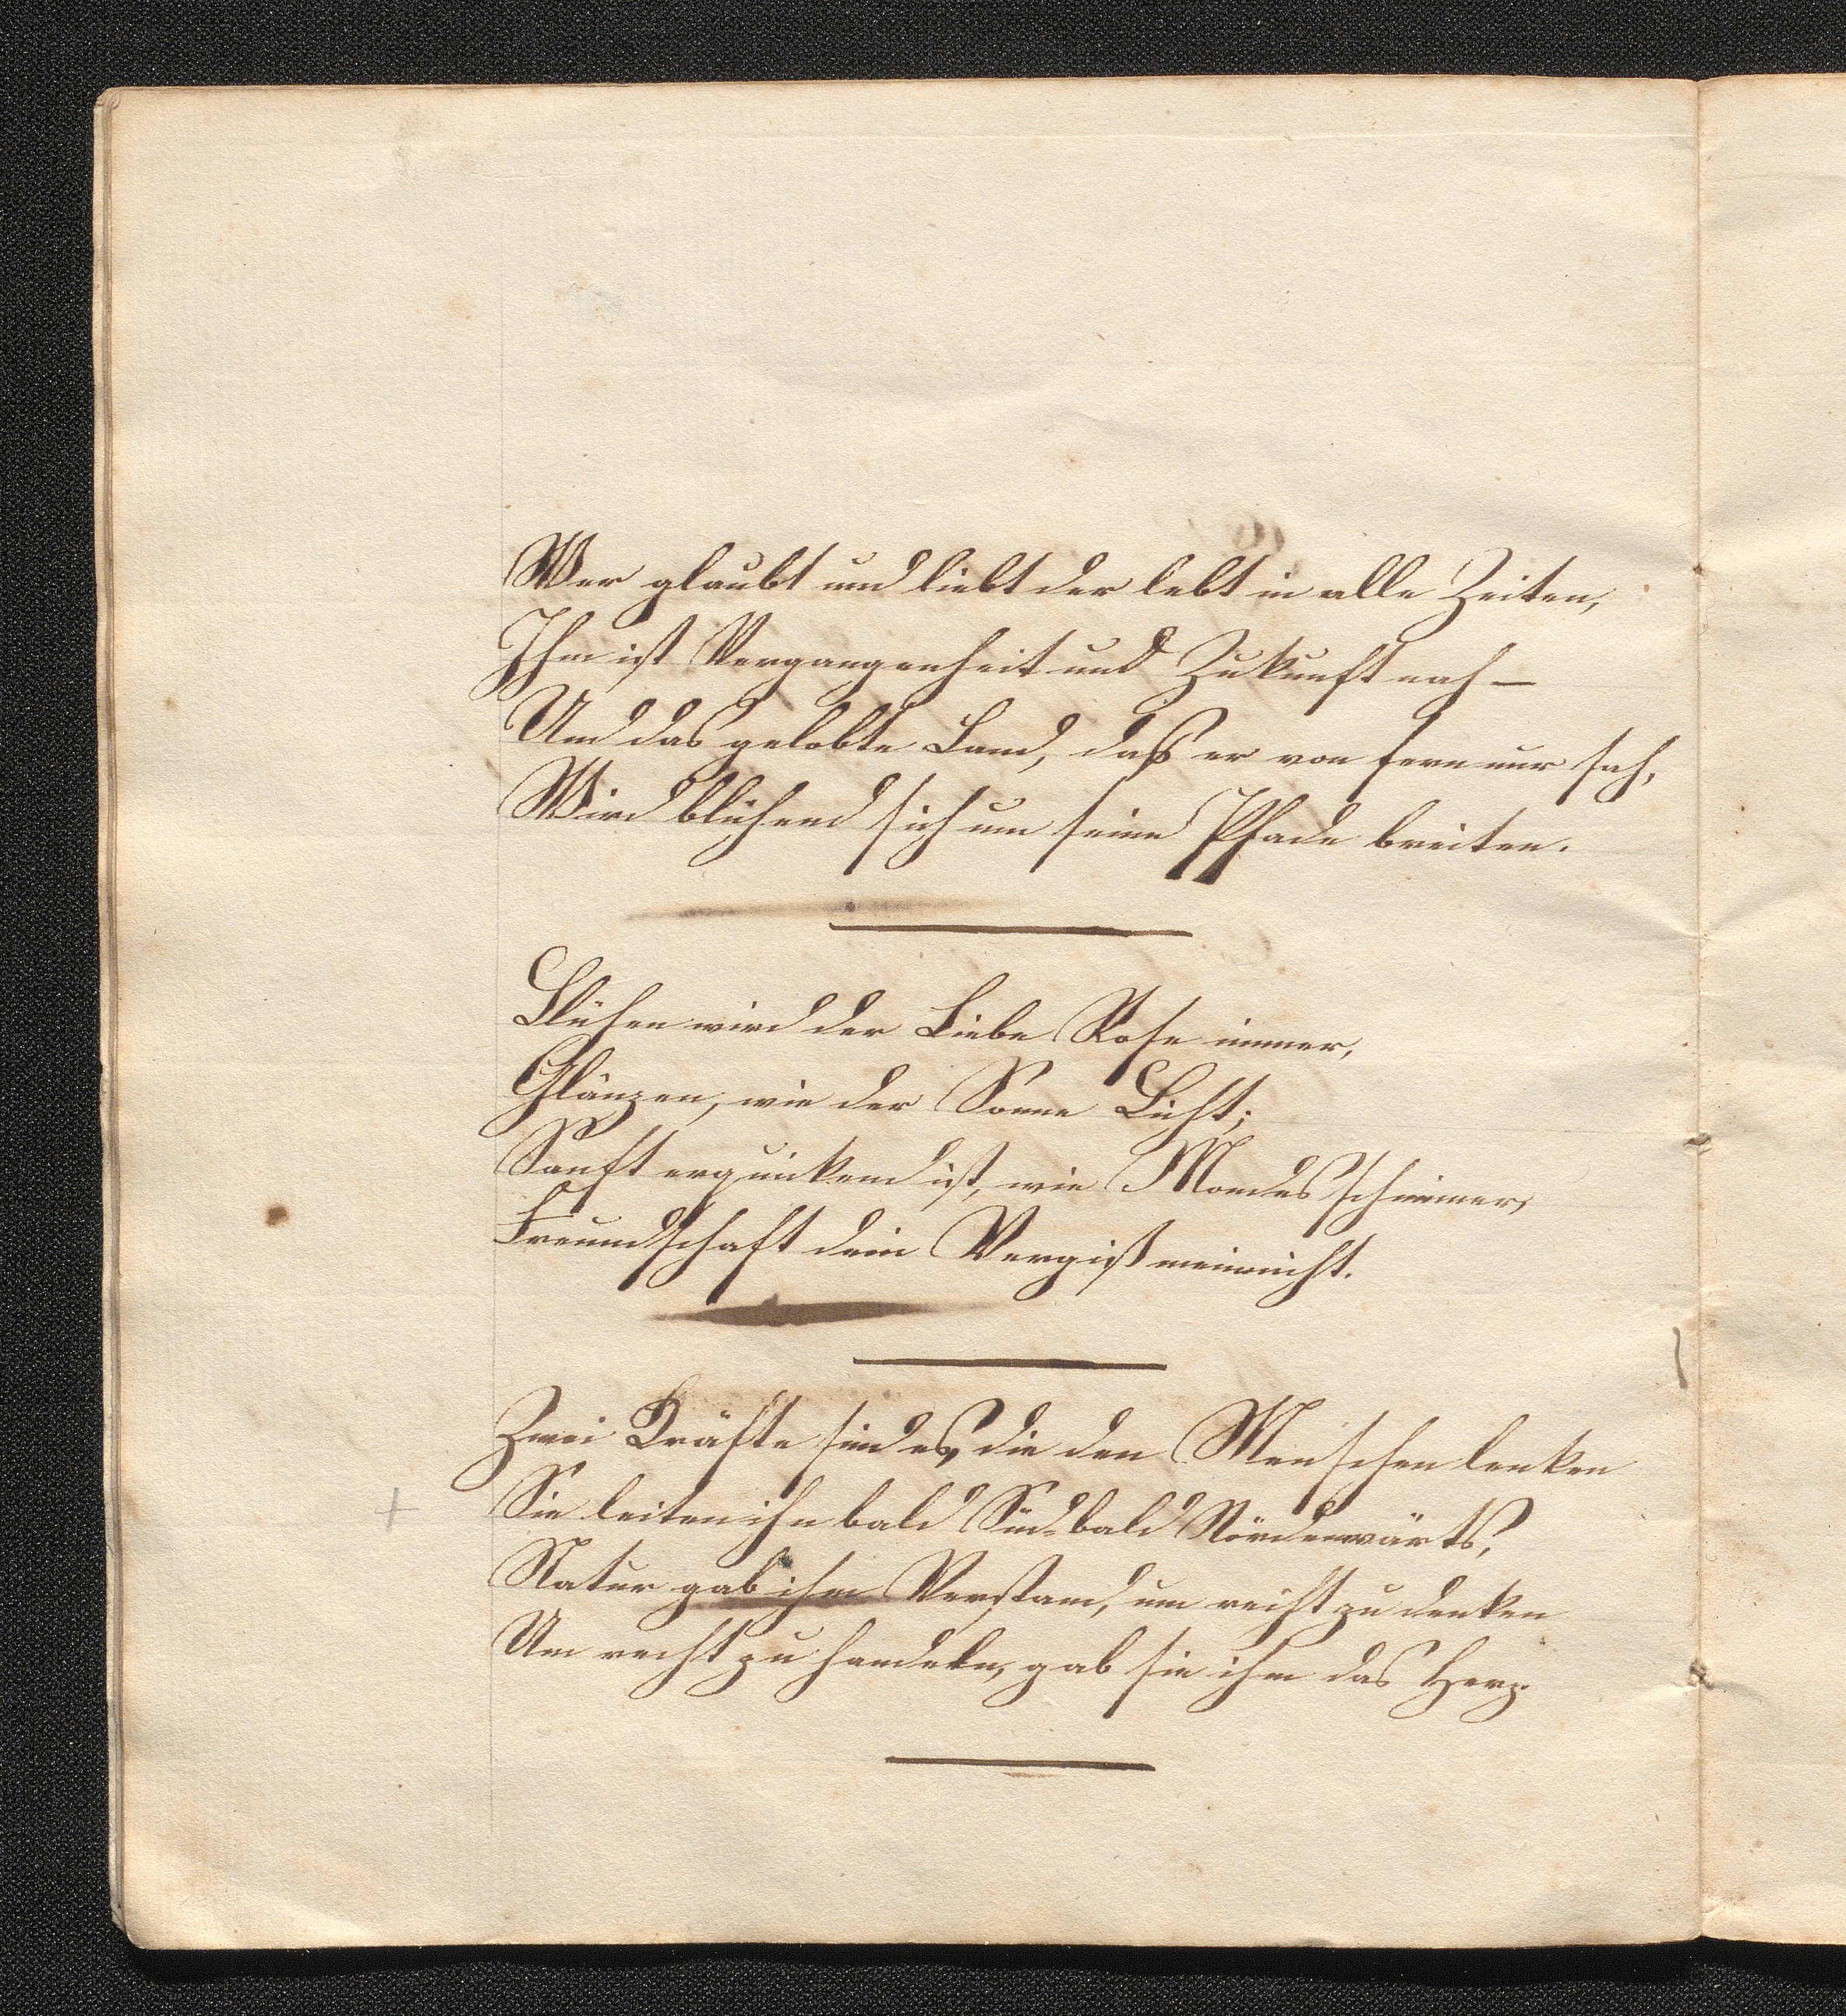 Wer glaubt und liebt der lebt in alle Zeiten,
Ihm ist Vergangenheit und Zukunft nah –
Und das gelobte Land, daß er von fern nur sah,
Wird blühend sich um seine Pfade breiten.
Blühen wird der Liebe Rose immer,
Glänzen, wie der Sonne Licht;
Sanft erquickend ist, wie Mondes schimmer,
Freundschaft dein Vergiß meinnicht.
Zwei Kräfte sind es, die den Menschen lenken
Sie leiten ihn bald Süd- bald Nördenwärts,
Natur gab ihm Verstand, um recht zu denken
Um recht zu handeln, gab sie ihm das Herz.